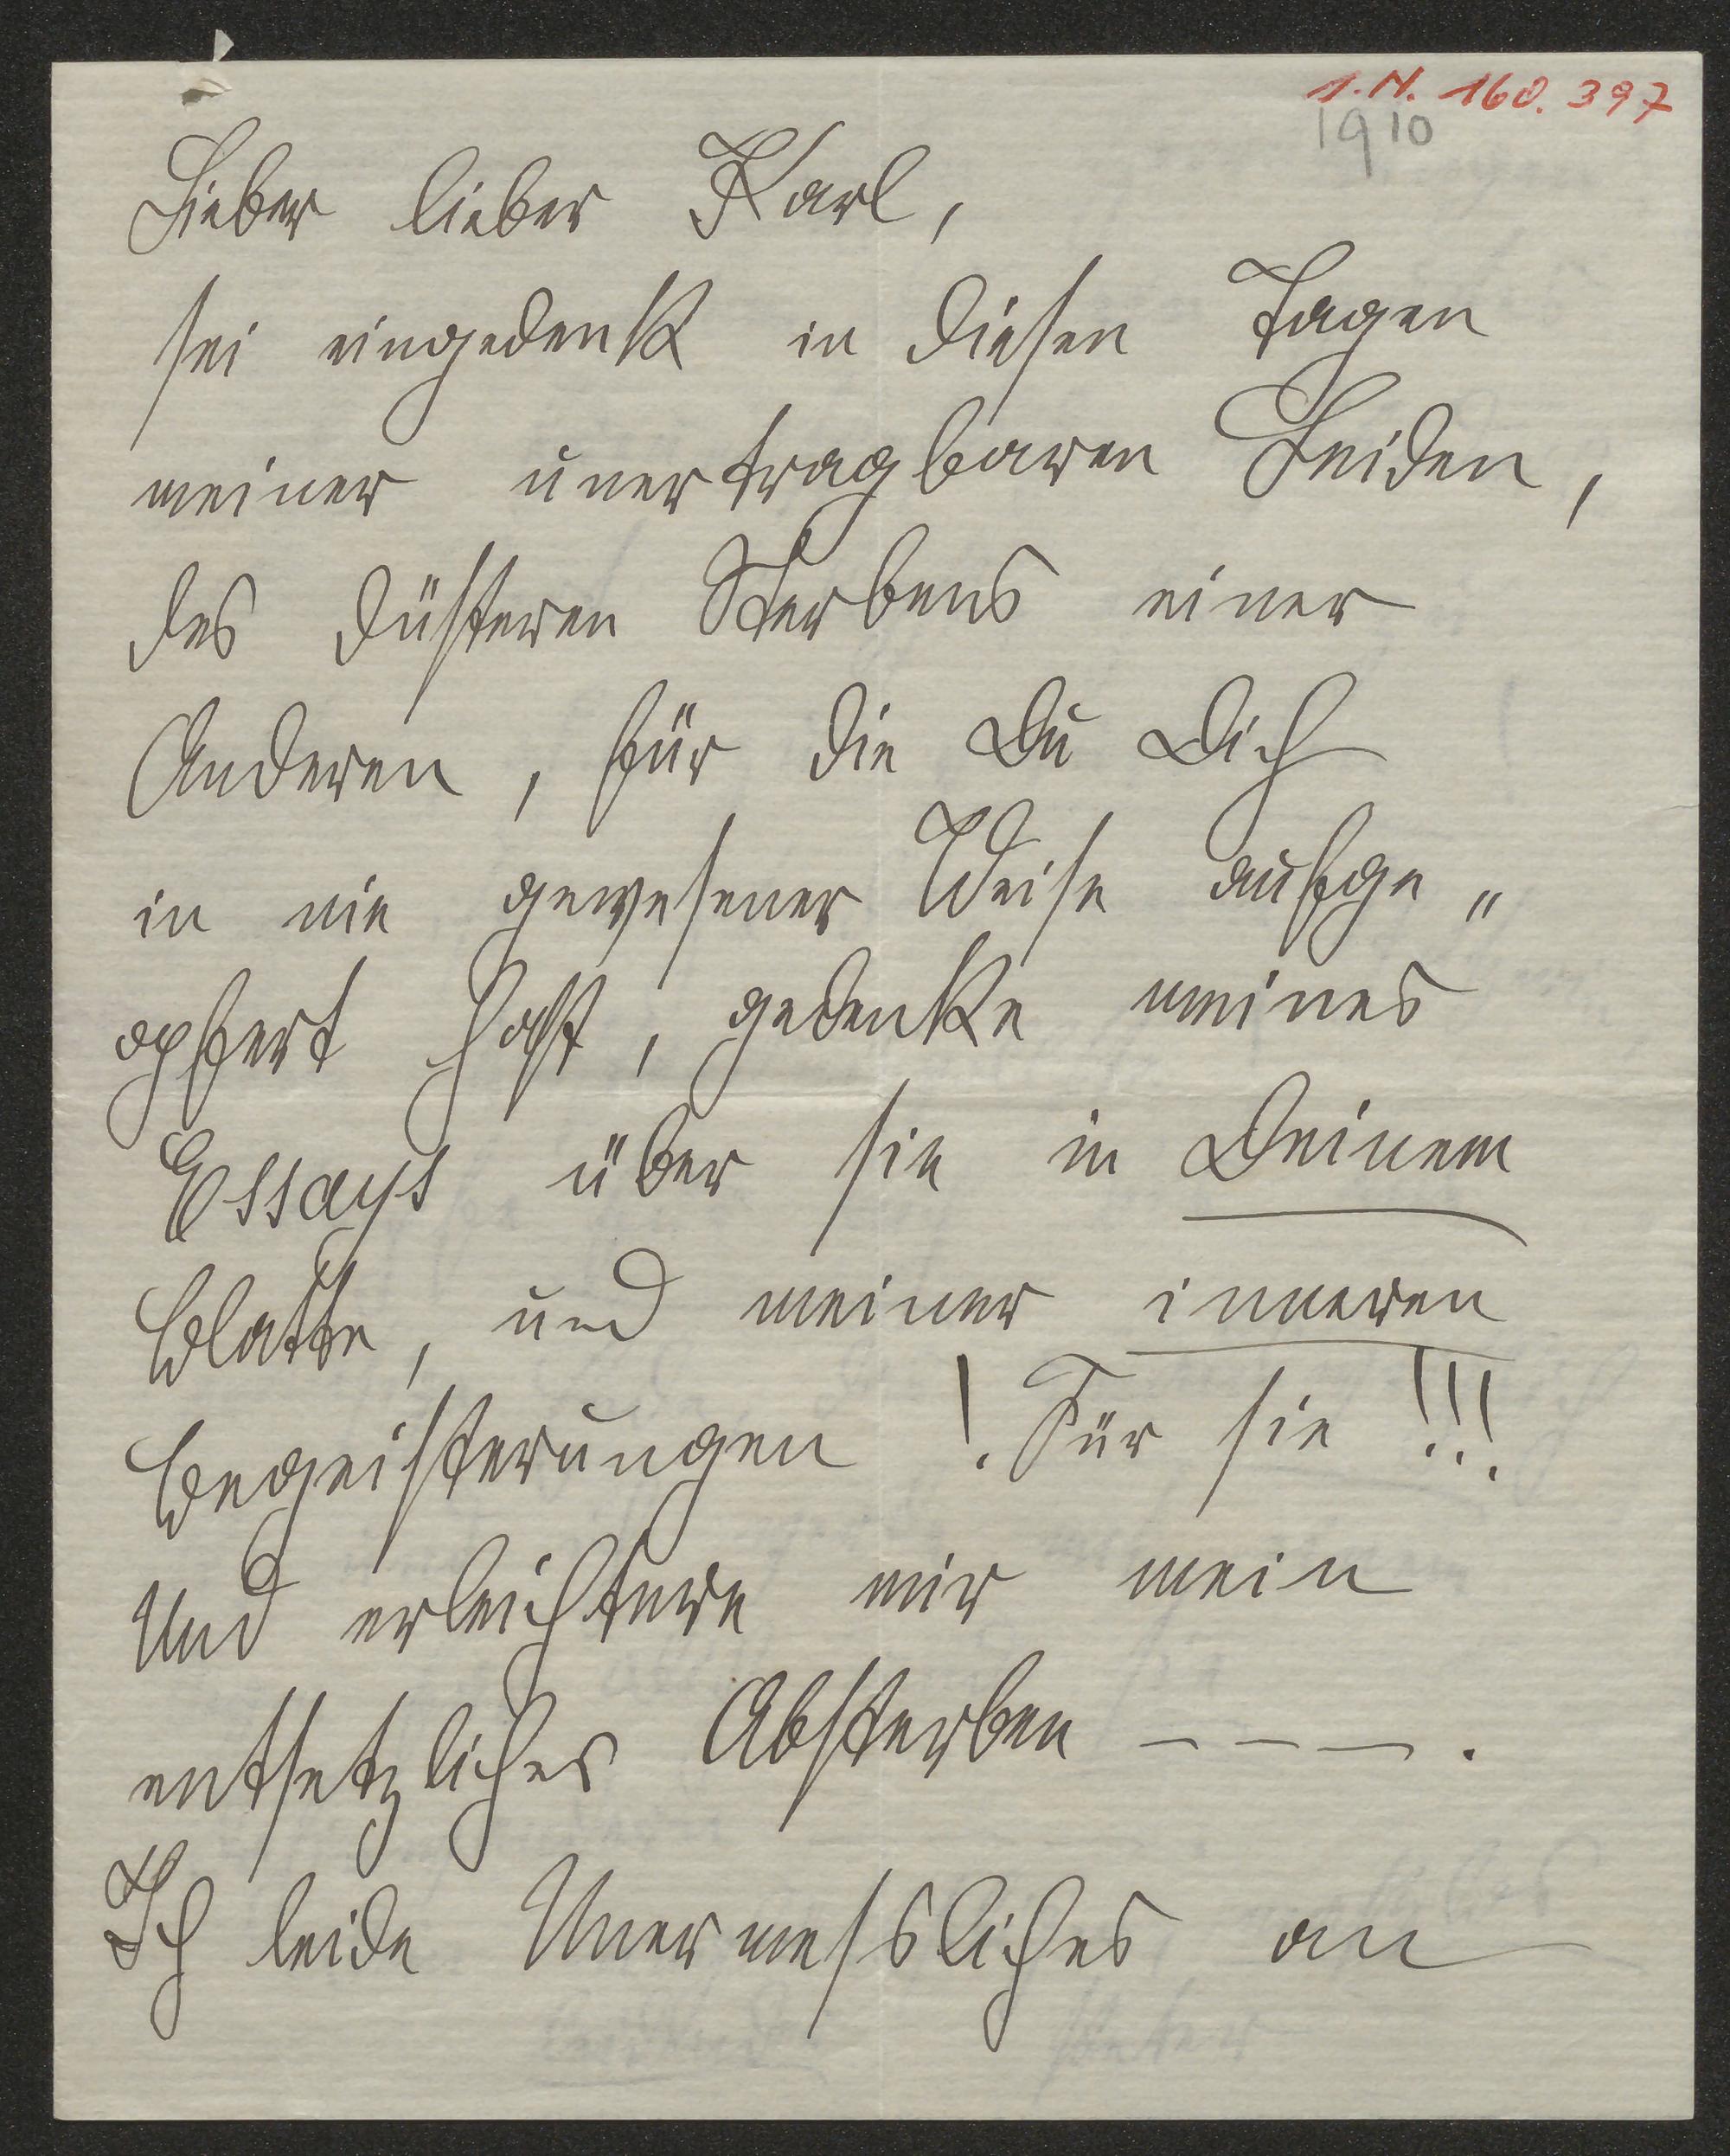 I.N. 160.397
1910
Lieber lieber Karl,
sei eingedenk in diesen Tagen
meiner unertragbaren Leiden,
des düsteren Sterbens einer
Anderen, für die Du Dich
in nie gewesener Weise aufge„
opfert hast, gedenke meines
Essays über sie in Deinem
Blatte, und meiner inneren
Begeisterungen !. Für sie !!!
Und erleichtere mir mein
entsetzliches Absterben – – – .
Ich leide Unermessliches an